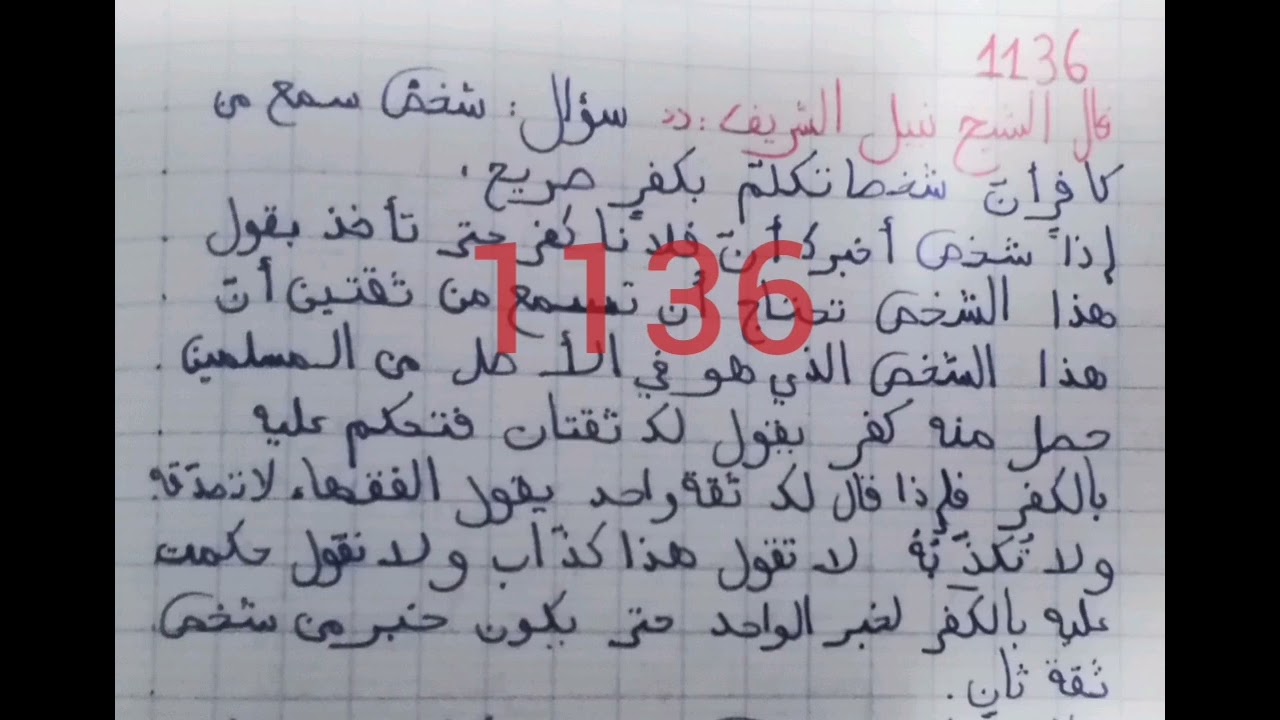 1136
قال الشيخ نبيل الشريف: «سؤال: شخصٌ سمع من
كافرٍ أنّ شخصا تكلّم بكفرٍ صريح.
إذاً شخص أخبرك أنّ فلاناً كفر حتى تأخذ بقول
هذا الشخص تحتاج أن تسمع من ثقتين أنّ
هذا الشخص الذي هو في الأصل من المسلمين
حصل منه كفر يقول لك ثقتان فتحكم عليه
بالكفر فإذا قال لك ثقة واحد يقول الفقهاء لا تصدّقه
ولا تُكذِّبهُ لا تقول هذا كذّاب ولا تقول حكمت
عليه بالكفر لخبر الواحد حتى يكون خبر من شخص
ثقة ثانٍ.
1136